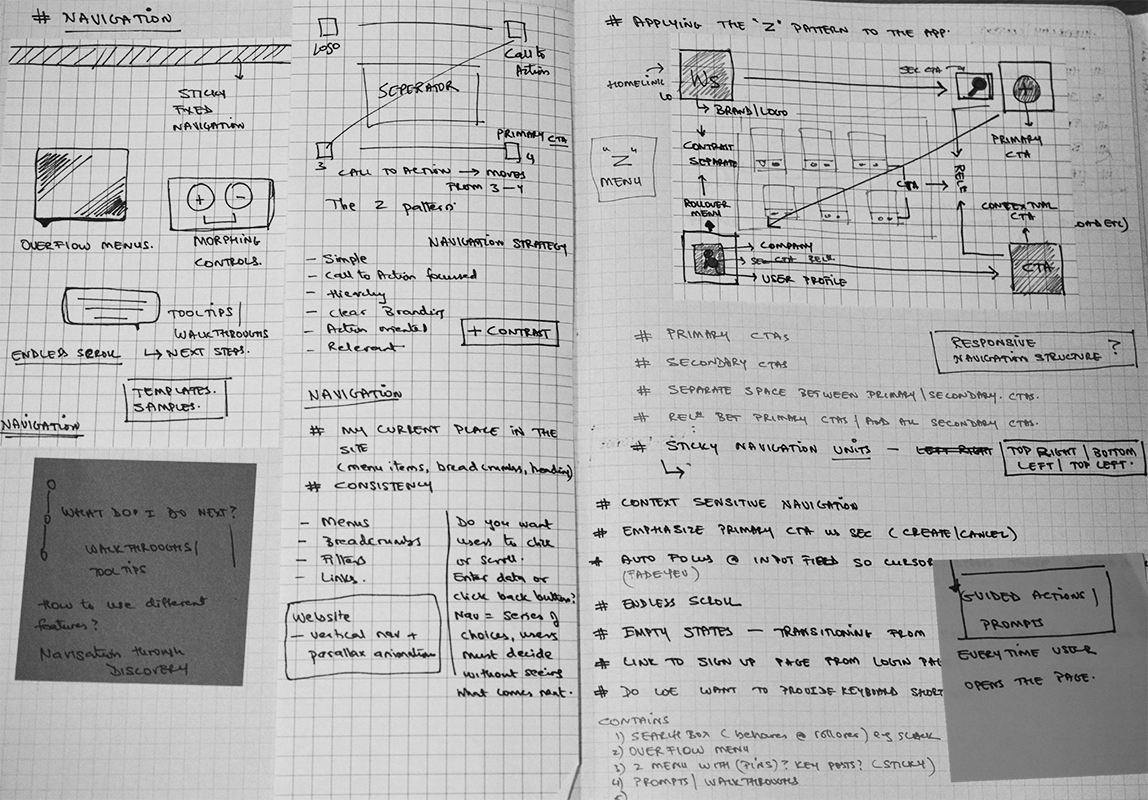 # NAVIGATION
STICKY
FIXED
NAVIGATION
OVERFLOW MENUS.
+
−
MORPHING
CONTROLS.
TOOLTIPS/
WALKTHROUGHS
ENDLESS SCROLL
↳ NEXT STEPS.
TEMPLATES.
SAMPLES.
NAVIGATION
WHAT DO I DO NEXT?
WALKTHROUGHS/
TOOLTIPS
How to use different
features?
Navigation through
DISCOVERY
LOGO
Call to
Action
SEPERATOR
PRIMARY CTA
3
4
CALL TO ACTION → MOVES
FROM 3-4
The Z pattern.
NAVIGATION STRATEGY
- Simple
- Call to Action focused
- Hierarchy
- Clear Branding
- Action oriented
- Relevant
+ CONTRAST
NAVIGATION
# MY CURRENT PLACE IN THE
SITE
(menu items, breadcrumbs, heading)
# CONSISTENCY
- Menus
- Breadcrumbs
- Filters
- Links.
Website
- vertical nav +
parallax animation
Do you want
users to click
or scroll.
Enter data or
click back button?
Nav = series of
choices, users
must decide
without seeing
what comes next.
# APPLYING THE "Z" PATTERN TO THE APP.
HOMELINK
WS
SEC CTA
A
BRAND/LOGO
PRIMARY
CTA
"Z"
MENU
CONTRAST
SEPARATE
CTA
REL
ROLLOVER
MENU
CONTEXTUAL
CTA
COMPANY
USER PROFILE
CTA
# PRIMARY CTAS
# SECONDARY CTAS
# SEPARATE SPACE BETWEEN PRIMARY/SECONDARY. CTAS.
# REL BET PRIMARY CTAS/ AND ALL SECONDARY CTAS.
RESPONSIVE
NAVIGATION STRUCTURE?
# STICKY NAVIGATION UNITS - LEFT RIGHT
TOP RIGHT/BOTTOM
LEFT/TOP LEFT.
# CONTEXT SENSITIVE NAVIGATION
# EMPHASIZE PRIMARY CTA vs SEC (CREATE/CANCEL)
# AUTO FOCUS @ INPUT FIELD SO CURSOR
(FADEYEV)
# ENDLESS SCROLL
# EMPTY STATES - TRANSITIONING FROM
# LINK TO SIGN UP PAGE FROM LOGIN
# DO WE WANT TO PROVIDE KEYBOARD
CONTAINS
1) SEARCH BOX (behaves @ rollover) eg SLACK
2) OVERFLOW MENU
3) Z MENU WITH (PINS)? KEY POSTS? (STICKY)
4) PROMPTS/ WALKTHROUGHS
GUIDED ACTIONS/
PROMPTS
EVERYTIME USER
OPENS THE PAGE.